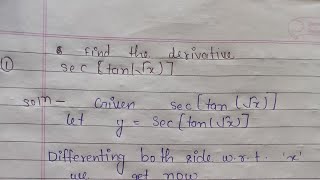 Find the derivative
(1) sec [tan(√x)]
soln - Given sec[tan(√x)]
let y = sec[tan(√x)]
Differenting both side w.r.t. 'x'
we get now